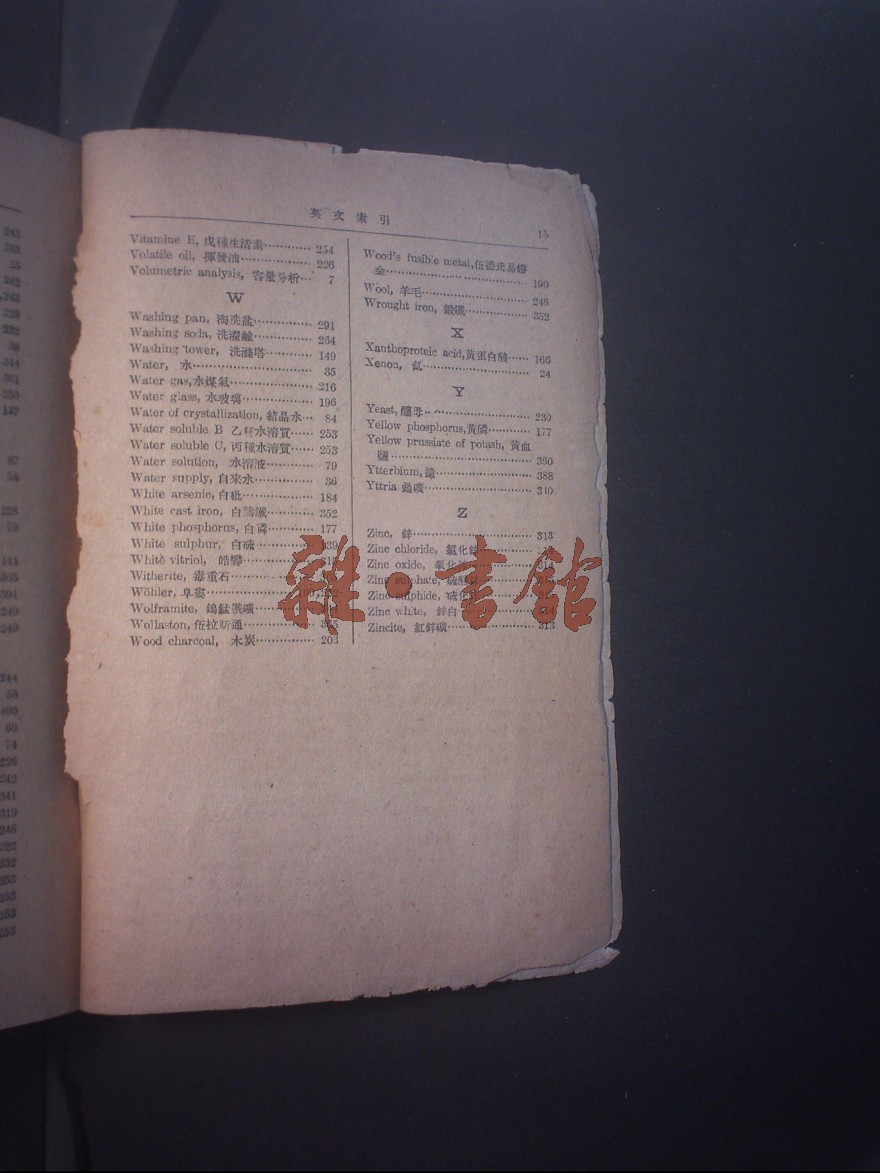 英文索引
15
Vitamine E, 戊種生活素············ 254
Volatile oil, 揮發油··············· 226
Volumetric analysis, 容量分析··· 7
W
Washing pan, 淘洗盆··············· 291
Washing soda, 洗濯鹼············ 264
Washing tower, 洗滌塔············ 149
Water, 水····························· 35
Water gas,水煤氣·················· 216
Water glass, 水玻璃··············· 196
Water of crystallization, 結晶水··· 84
Water soluble B 乙種水溶質······ 253
Water soluble C, 丙種水溶質······ 253
Water solution, 水溶液············ 79
Water supply, 自來水··············· 36
White arsenic, 白砒················ 184
White cast iron, 白鑄鐵············ 352
White phosphorus, 白磷············ 177
White sulphur, 白硫
White vitriol, 皓礬
Witherite, 毒重石
Wöhler,
Wolframite, 鎢錳鐵礦
Wollaston,
Wood charcoal, 木炭··············· 203
Wood's fusible metal,伍德氏易熔
金································· 190
Wool, 羊毛························· 248
Wrought iron, 鍛鐵··············· 352
X
Xanthoproteic acid,黃蛋白酸······ 166
Xenon, 氙··························· 24
Y
Yeast, 釀母························· 230
Yellow phosphorus,黃磷············ 177
Yellow prussiate of potash, 黃血
鹽································· 360
Ytterbium, ························ 388
Yttria ····························· 310
Z
Zinc, 鋅····························· 313
Zinc chloride, 氯化鋅
Zinc oxide, 氧化鋅
Zinc sulphate, 硫酸鋅
Zinc sulphide, 硫化鋅
Zinc white, 鋅白
Zincite, 紅鋅礦····················· 313
雜·書館
243
383
25
242
228
232
344
361
350
187
87
228
79
111
249
249
244
58
400
60
74
226
242
341
319
246
222
352
353
253
253
253